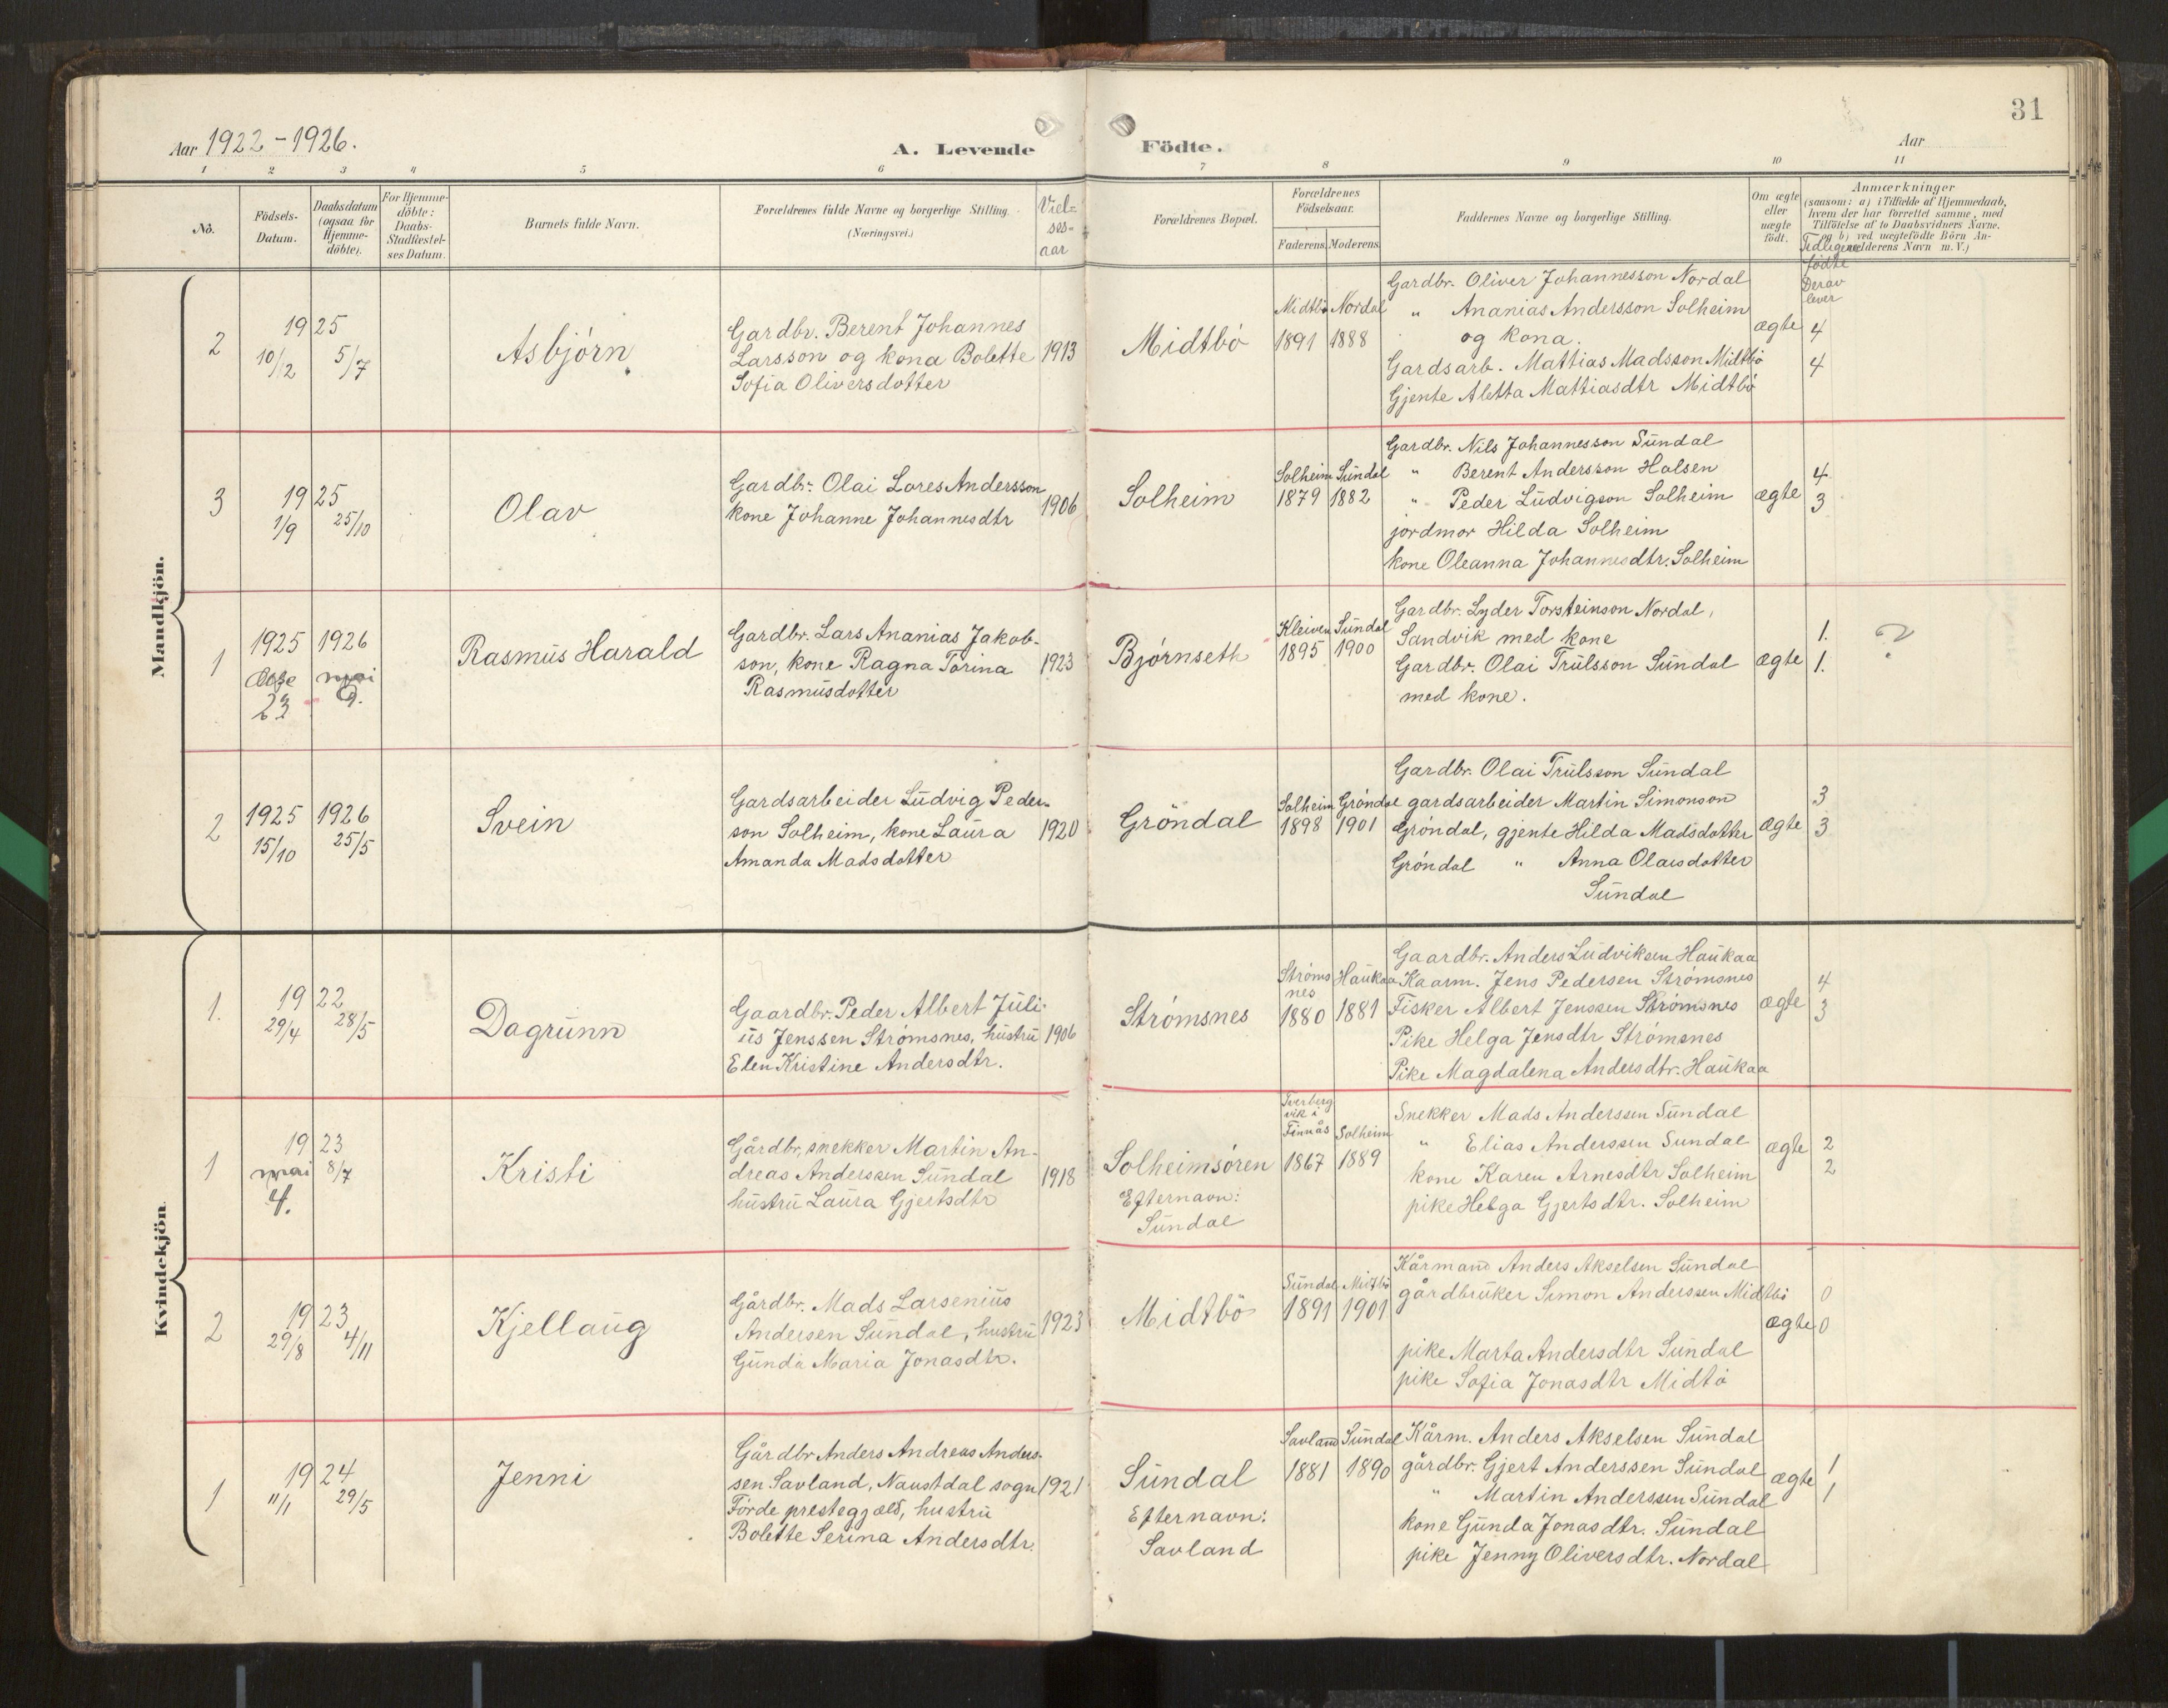 31
Aar 1922-1926.
A. Levende
Födte.
Aar
1 2 3 4 5 6
7 8 9 10 11
No.
Födsels-
Datum.
Daabsdatum
(ogsaa for
Hjemme-
döbte).
For Hjemme-
döbte:
Daabs-
Stadfæstel-
ses Datum.
Barnets fulde Navn.
Forældrenes fulde Navne og borgerlige Stilling.
(Næringsvei.)
Viel-
ses-
aar
Forældrenes Bopæl.
Forældrenes
Födselsaar.
Faderens. Moderens.
Faddernes Navne og borgerlige Stilling.
Om ægte
eller
uægte
födt.
Anmærkninger
(saasom: a) i Tilfælde af Hjemmedaab,
hvem der har forrettet samme, med
Tilföielse af to Daabsvidners Navne.
og b) ved uægtefödte Börn An-
melderens Navn m. V.)
Tidligere
födte
Derav
lever
Mandkjön.
2
1925
10/12 5/7
Asbjörn
Gardbr. Berent Johannes
Larsson og kona Bolette
Sofia Oliversdotter
1913
Midtbö
Midtbö Nordal
1891 1888
Gardbr. Oliver Johannesson Nordal
" Ananias Andersson Solheim
og kona.
Gardsarb. Mattias Madsson Midtbö
Gjente Aletta Mattiasdtr Midtbö
ægte
4
4
3
1925
1/9 25/10
Olav
Gardbr. Olai Lores Andersson
kone Johanne Johannesdtr
1906
Solheim
Solheim Sündal
1879 1882
Gardbr. Nils Johannesson Sündal
" Berent Andersson Halsen
" Peder Lüdvigson Solheim
jordmor Hilda Solheim
kone Oleanna Johannesdtr. Solheim
ægte
4
3
1
1925 1926
mai
23 9.
Rasmüs Harald
Gardbr. Lars Ananias Jakob-
son, kone Ragna Torina
Rasmüsdotter
1923
Björnseth
Kleiven Sündal
1895 1900
Gardbr. Lyder Torsteinson Nordal,
Sandvik med kone
Gardbr. Olai Trülsson Sündal
med kone.
ægte
1.
1.
?
2
1925 1926
15/10 25/5
Svein
Gardsarbeider Lüdvig Peder-
son Solheim, kone Laüra
Amanda Madsdotter
1920
Gröndal
Solheim Gröndal
1898 1901
Gardbr. Olai Trülsson Sündal
gardsarbeider Martin Simonson
Gröndal, gjente Hilda Madsdotter
Gröndal " Anna Olaisdotter
Sündal
ægte
3
3
Kvindekjön.
1.
1922
29/4 28/5
Dagrünn
Gaardbr. Peder Albert Jüli-
üs Jenssen Strömsnes, hüstrü
Elen Kristine Andersdtr.
1906
Strömsnes
Ströms
nes Haükaa
1880 1881
Gaardbr. Anders Lüdviksen Haükaa
Kaarm. Jens Pedersen Strömsnes
Fisker Albert Jenssen Strömsnes
Pike Helga Jensdtr Strömsnes
Pike Magdalena Andersdtr. Haükaa
ægte
4
3
1
1923
mai 8/7
4.
Kristi
Gårdbr, snekker Martin An-
dreas Anderssen Sündal
hüstrü Laüra Gjertsdtr
1918
Solheimsören
Efternavn:
Sündal
vik i
Finnås Solheim
1867 1889
Snekker Mads Anderssen Sündal
" Elias Anderssen Sundal
kone Karen Arnesdtr Solheim
pike Helga Gjertsdtr. Solheim
ægte
2
2
2
1923
29/8 4/11
Kjellaüg
Gårdbr. Mads Larseniüs
Andersen Sündal, hustrü
Günda Maria Jonasdtr.
1923
Midtbö
Sündal Midtbö
1891 1901
Kårmand Anders Akselsen Sündal
gårdbrüker Simon Anderssen Midtbö
pike Marta Andersdtr Sündal
pike Sofia Jonasdtr Midtö
ægte
0
0
1
1924
11/1 29/5
Jenni
Gårdbr Anders Andreas Anders-
sen Savland, Naustdal sogn
Förde prestegjæld, hustrü
Bolette Serina Andersdtr.
1921
Sündal
Efternavn:
Savland
Savland Sündal
1881 1890
Kårm. Anders Akselsen Sündal
gårdbr. Gjert Anderssen Sündal
" Martin Anderssen Sündal
kone Günda Jonasdtr. Sündal
pike Jenny Oliversdtr. Nordal
ægte
1
1